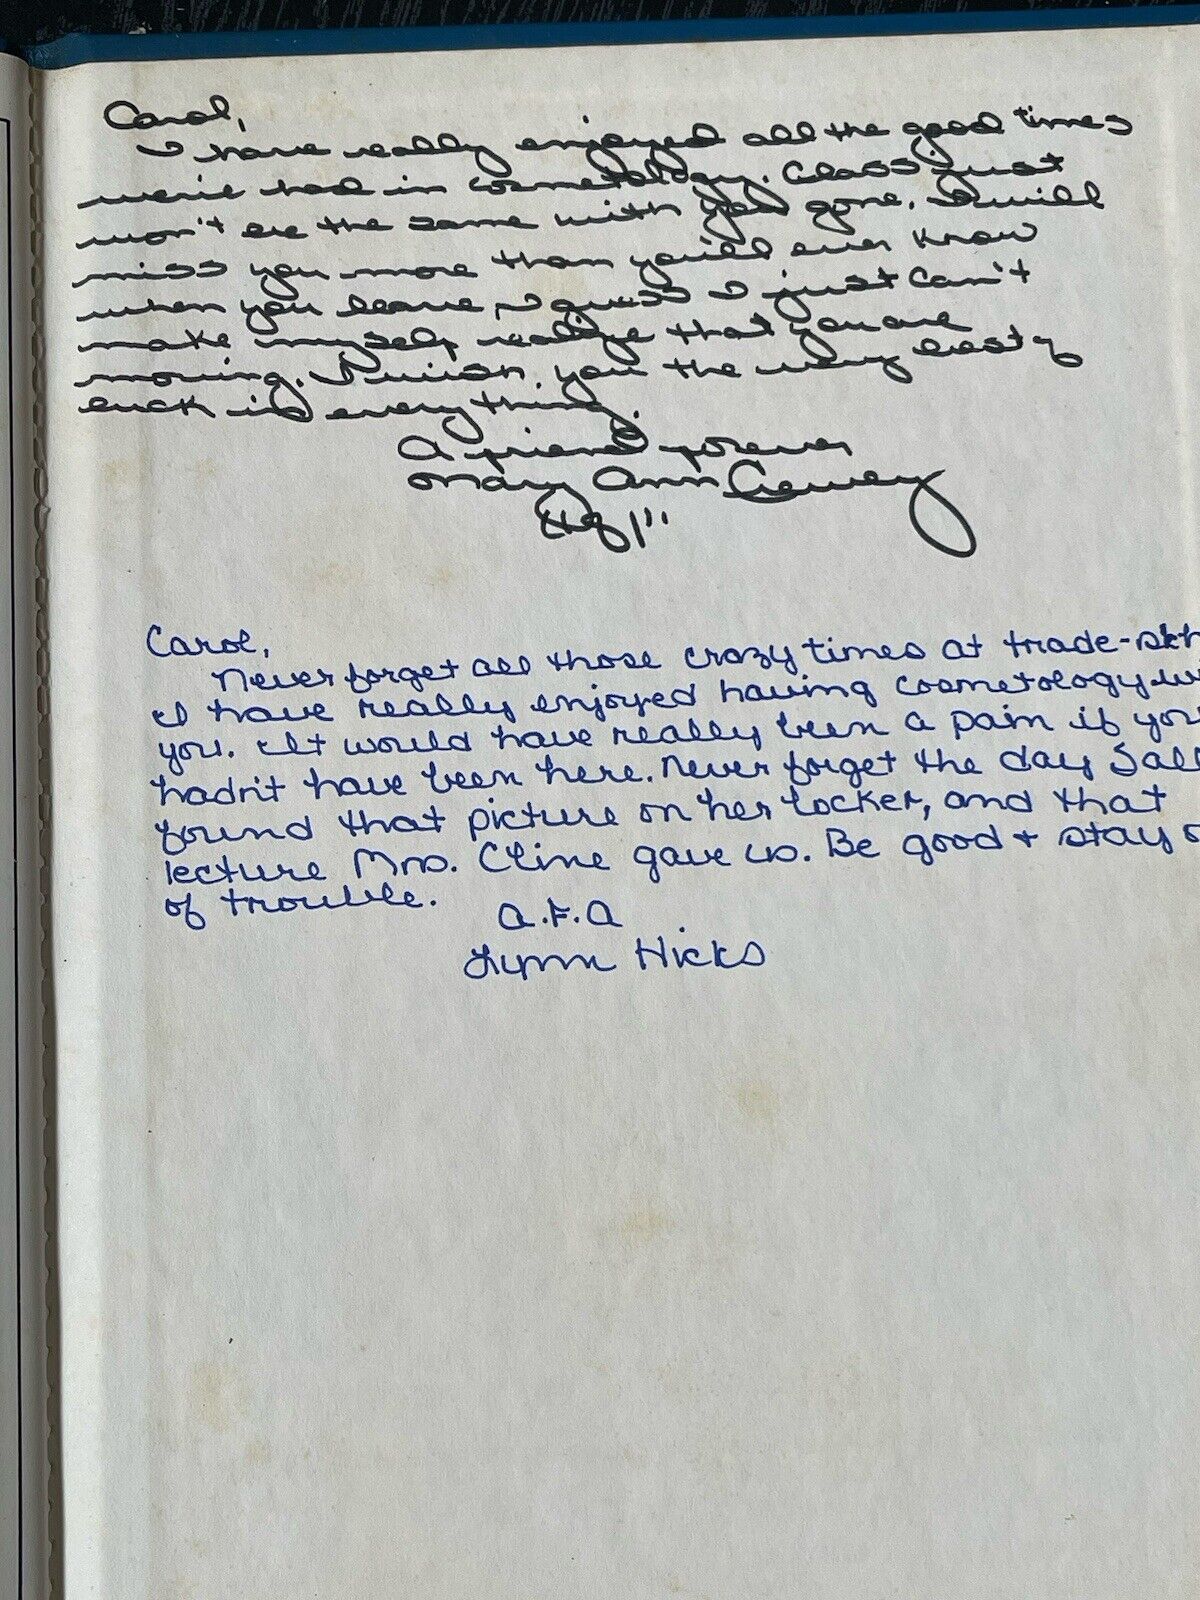 Carol,
I have really enjoyed all the good times
we've had in cosmetology. Class just
won't be the same with you gone. I will
miss you more than you'll ever know
when you leave, I guess I just can't
make myself realize that you are
moving. I wish you the very best of
luck in everything.
A friend forever
Mary Ann
Carol,
Never forget all those crazy times at trade-
I have really enjoyed having cosmetology
you. It would have really been a pain if you
hadn't have been here. Never forget the day
found that picture on her locker, and that
lecture Mrs. Cline gave us. Be good + stay
of trouble.
A.F.A
Lynn Hicks